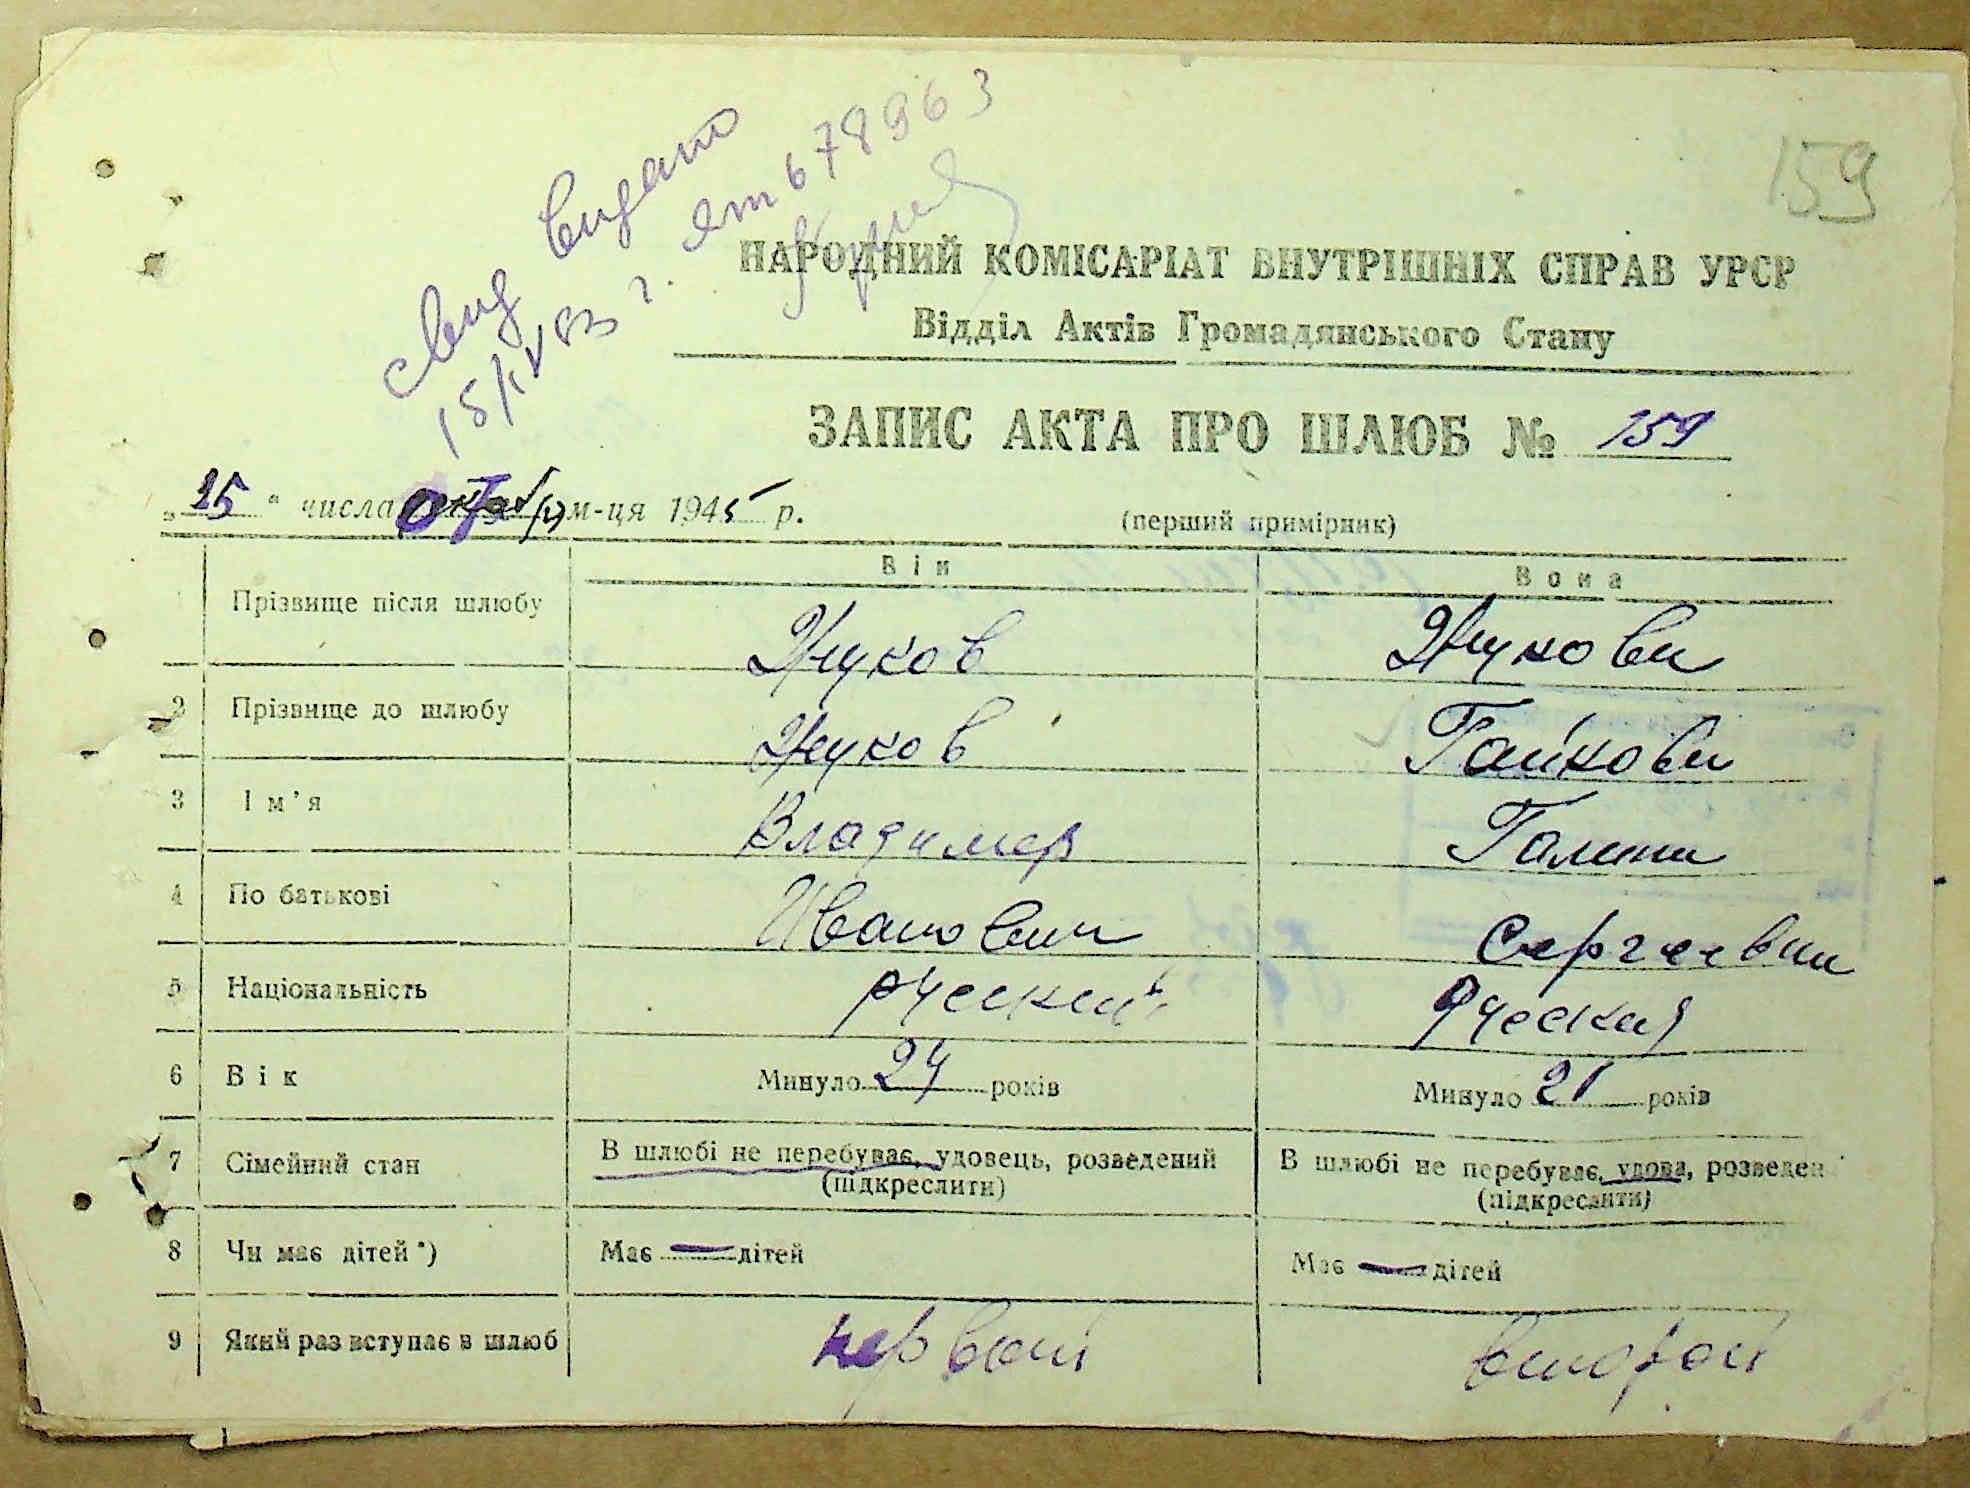 159
свид видано
15/IV 83 г. ЯТ 678963
НАРОДНИЙ КОМІСАРІАТ ВНУТРІШНІХ СПРАВ УРСР
Відділ Актів Громадянського Стану
ЗАПИС АКТА ПРО ШЛЮБ № 159
„25“ числа м-ця 1945 р.
(перший примірник)
Він Вона
Прізвище після шлюбу Жуков Жукова
2 Прізвище до шлюбу Жуков Гайкова
3 Ім'я Владимер Галина
4 По батькові Иванович Сергеевна
5 Національність русский Русская
6 Вік Минуло 24 років Минуло 21 років
7 Сімейний стан В шлюбі не перебуває, удовець, розведений В шлюбі не перебуває, удова, розведен
(підкреслити) (підкреслити)
8 Чи має дітей*) Має — дітей Має — дітей
9 Який раз вступає в шлюб первый второй